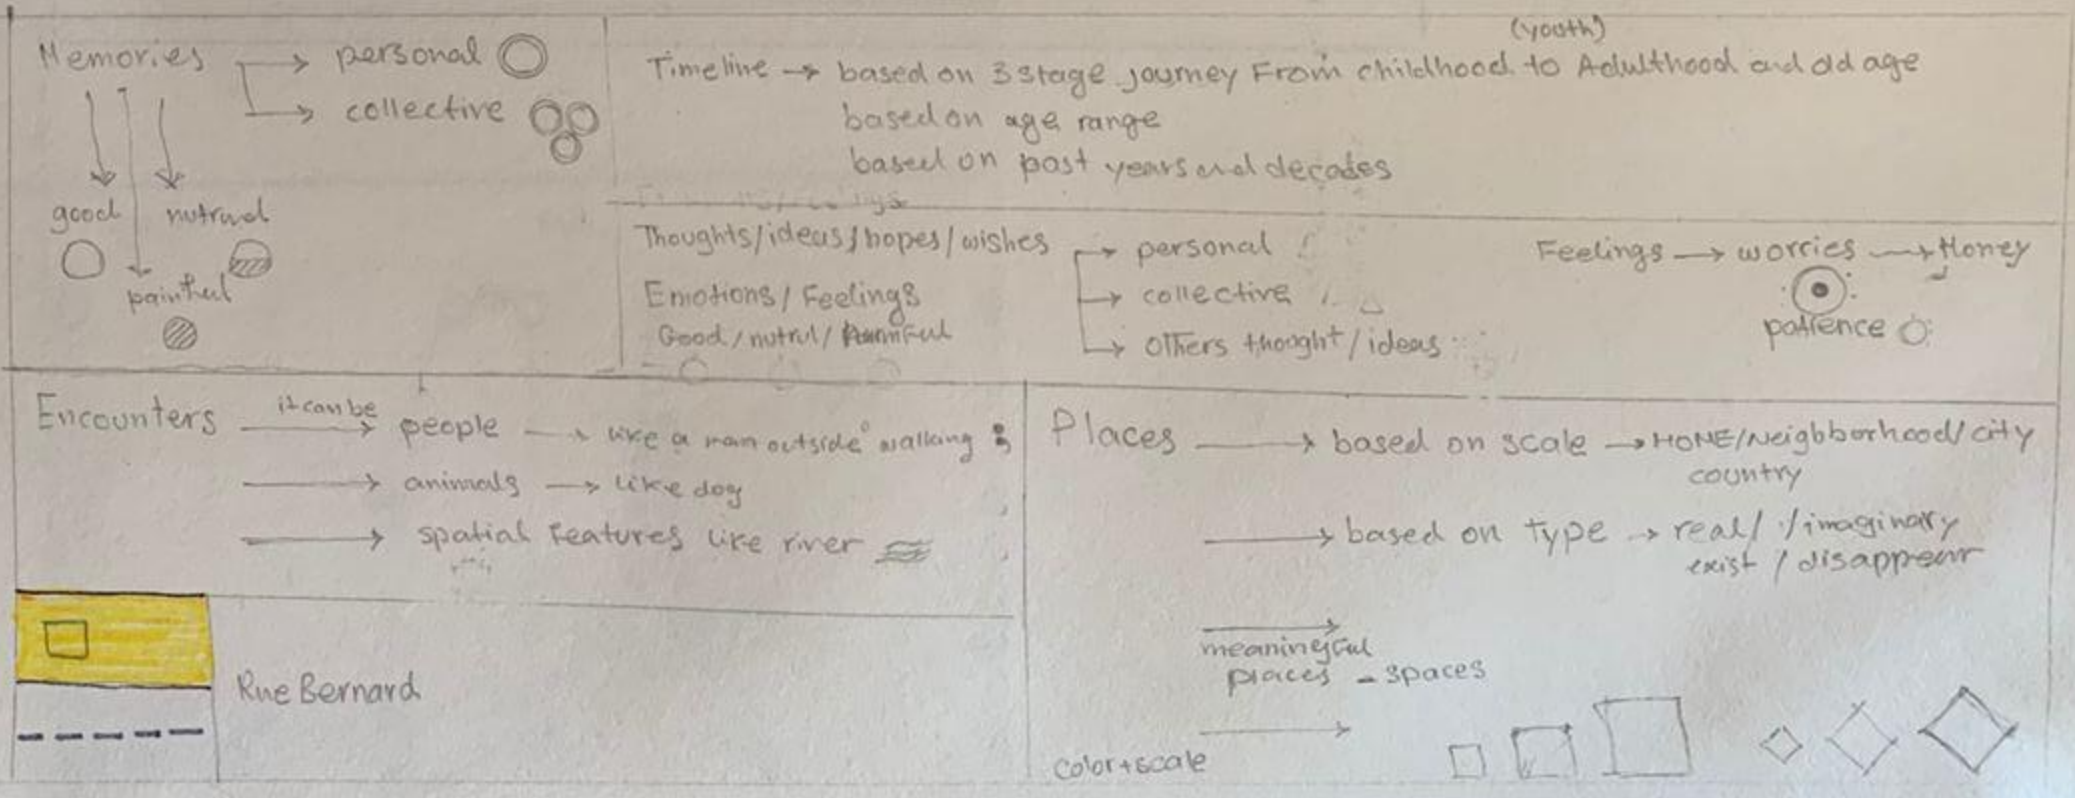 Memories → personal
→ collective
good
nutrual
painful
(youth)
Timeline → based on 3 stage journey From childhood to Adulthood and old age
based on age range
based on past years and decades
Thoughts/ideas/hopes/wishes
Emotions/Feelings
Good/nutrul/
→ personal
→ collective
→ others thought/ideas
Feelings → worries → Money
patience
Encounters it can be → people → like a man outside walking
→ animals → like dog
→ spatial features like river
Rue Bernard
Places → based on scale → HOME/Neighborhood/city
country
→ based on type → real/ /imaginary
exist / disappear
→
meaningful
places - spaces
→
color+scale